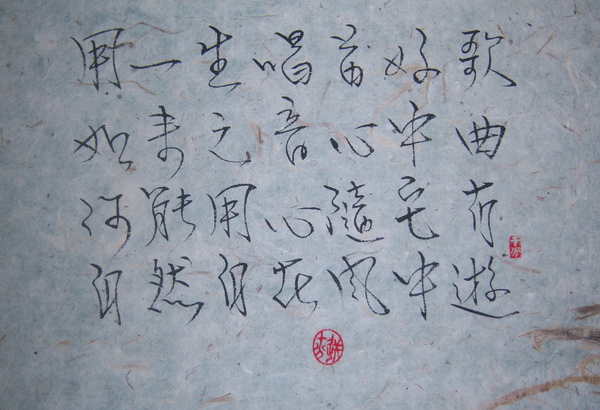 用一生唱首好歌
如来之音心中曲
何能用心隨它
自然自在风中遊